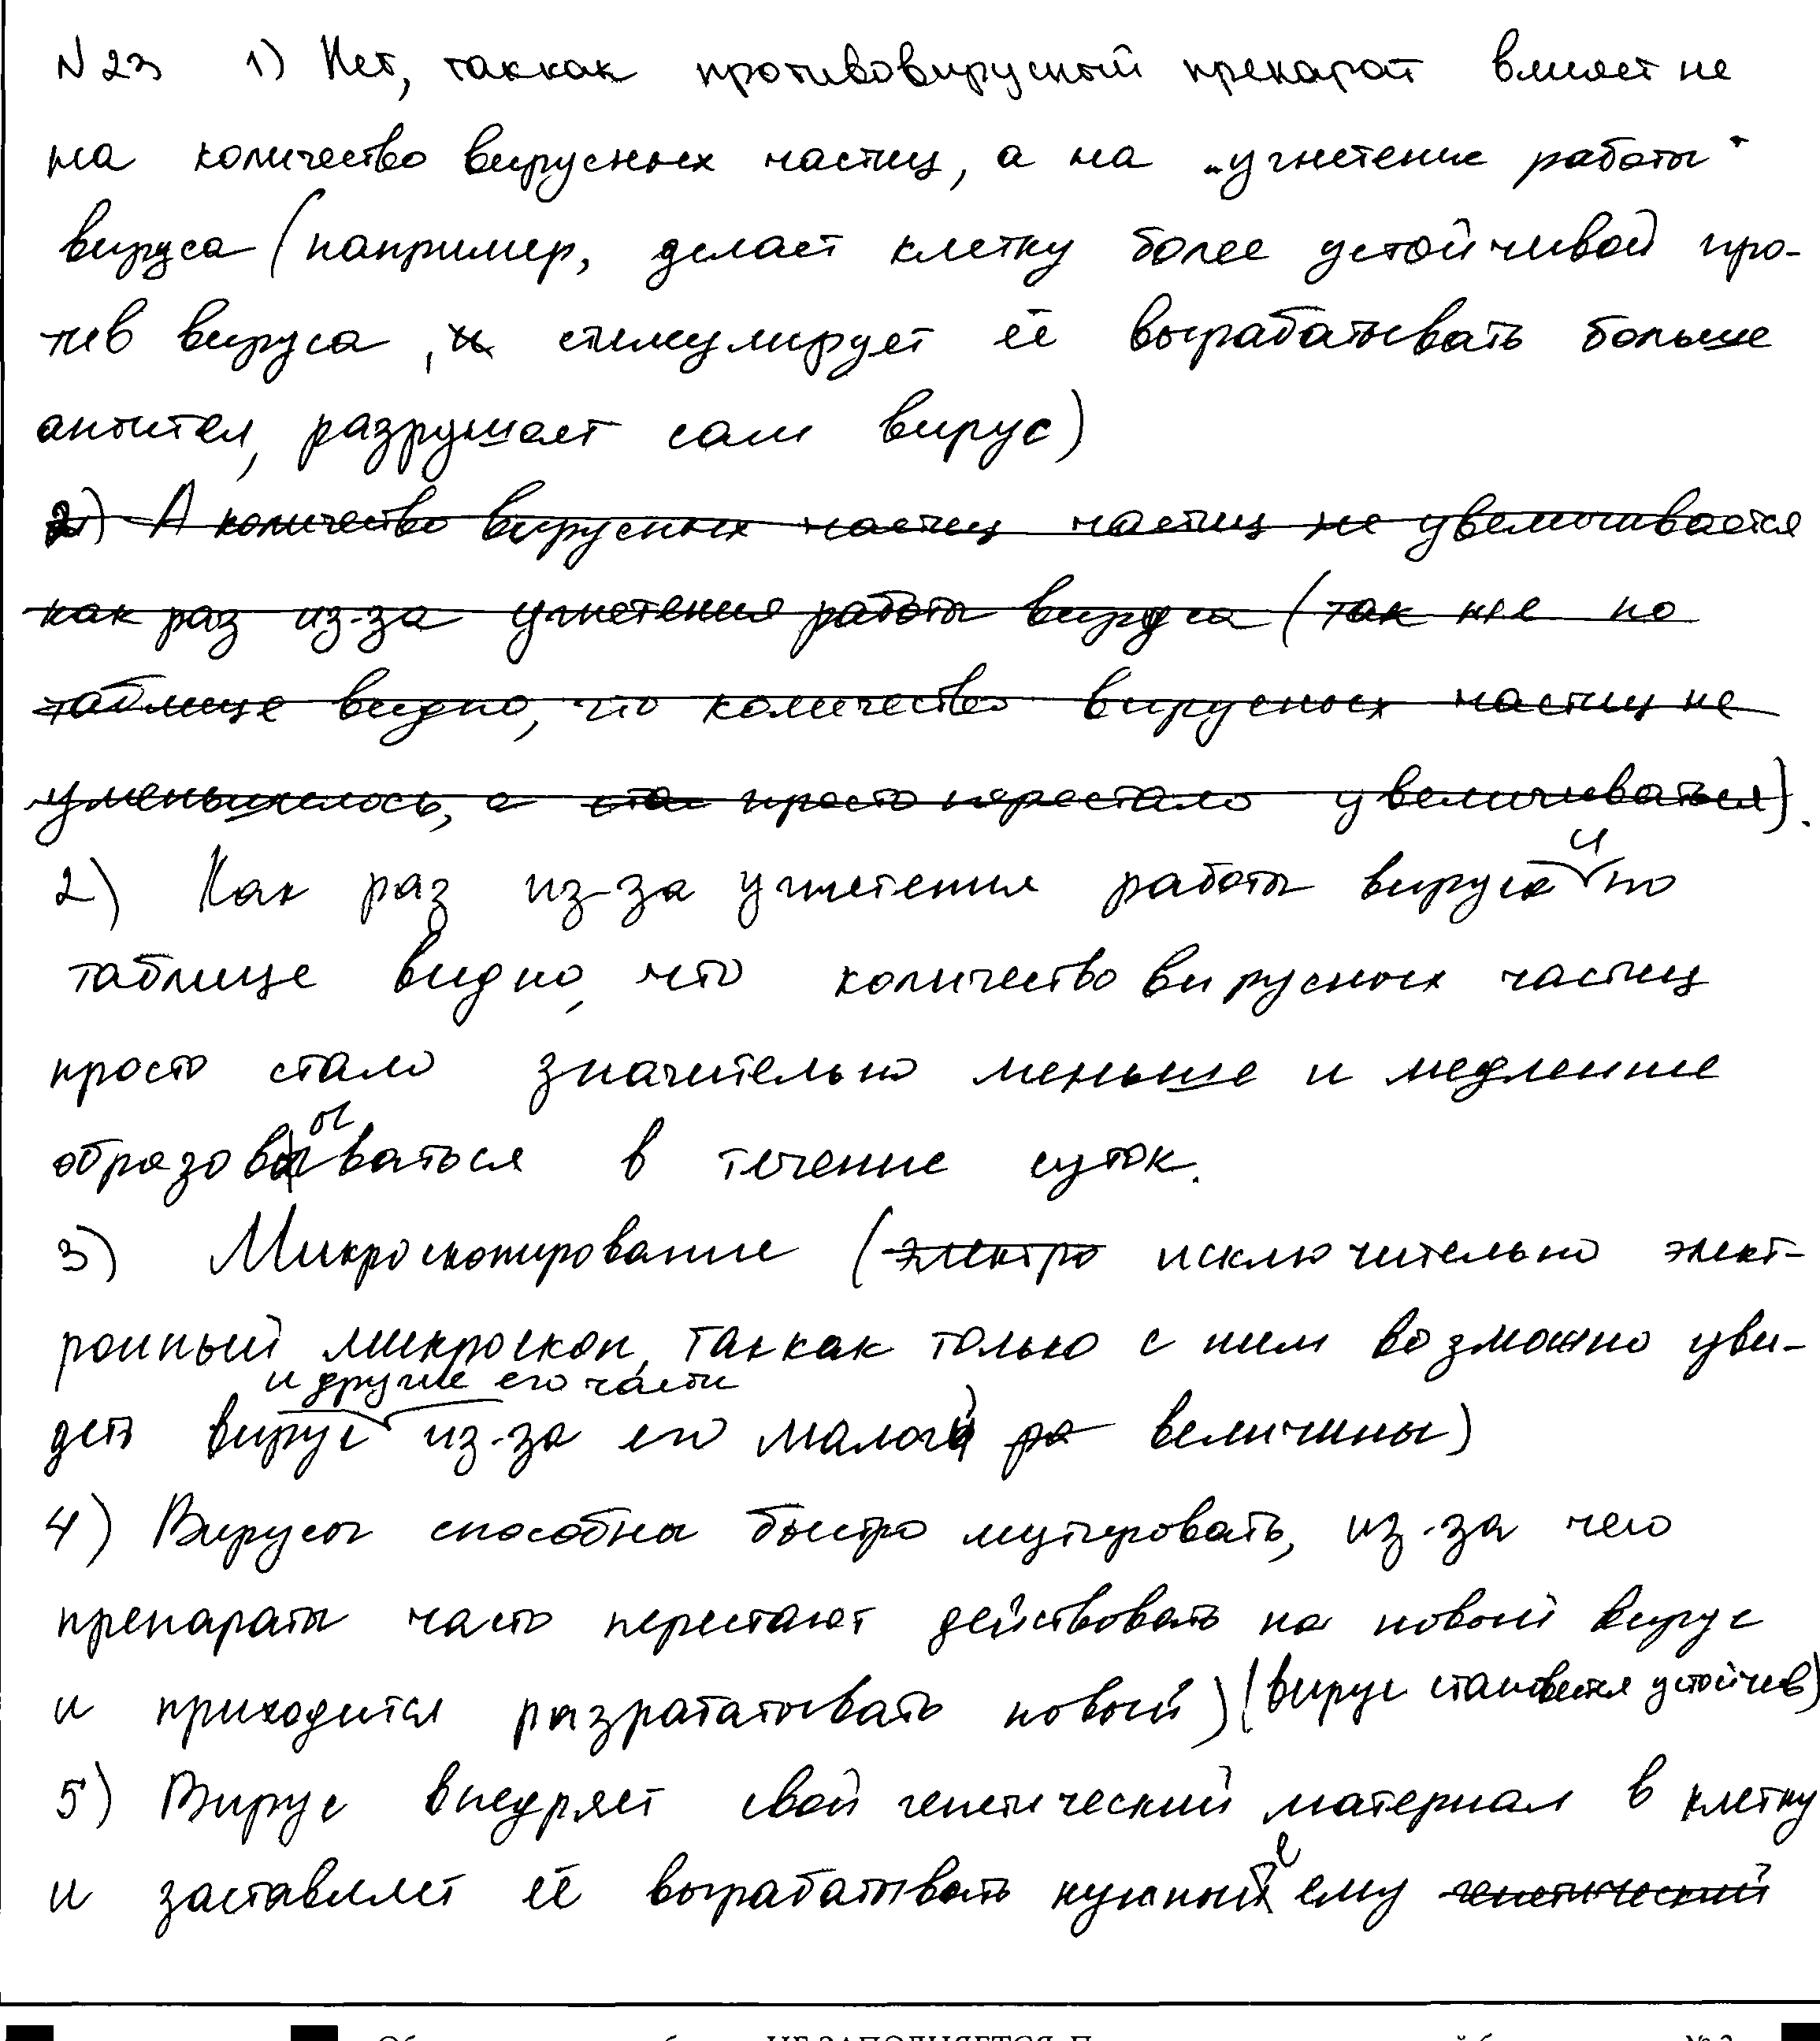 N23 1) Нет, таккак противовирусный препарат влияет не
на количество вирусных частиц, а на „угнетение работы"
вируса (например, делает клетку более устойчивой про-
тив вируса, и стимулирует её вырабатывать больше
антител, разрушает сам вирус)
2) А количество вирусных частиц частиц не увеличивается
как раз из-за угнетения работы вируса (так же по
таблице видно, что количество вирусных частиц не
уменьшилось, а ста просто перестало увеличиваться).
2) Как раз из-за угнетения работы вируса и по
таблице видно, что количество вирусных частиц
просто стало значительно меньше и медленнее
образовываться в течение суток.
3) Микроскопирование (электро исключительно элект-
ронный микроскоп, таккак только с ним возможно уви-
и другие его части
деть вирус из-за его малой ра величины)
4) Вирусы способны быстро мутировать, из-за чего
препараты часто перестают действовать на новый вирус
и приходится разрататывать новый) (вирус становится устойчив)
5) Вирус внедряет свой генетический материал в клетку
и заставляет её вырабатывать нужные ему генетический